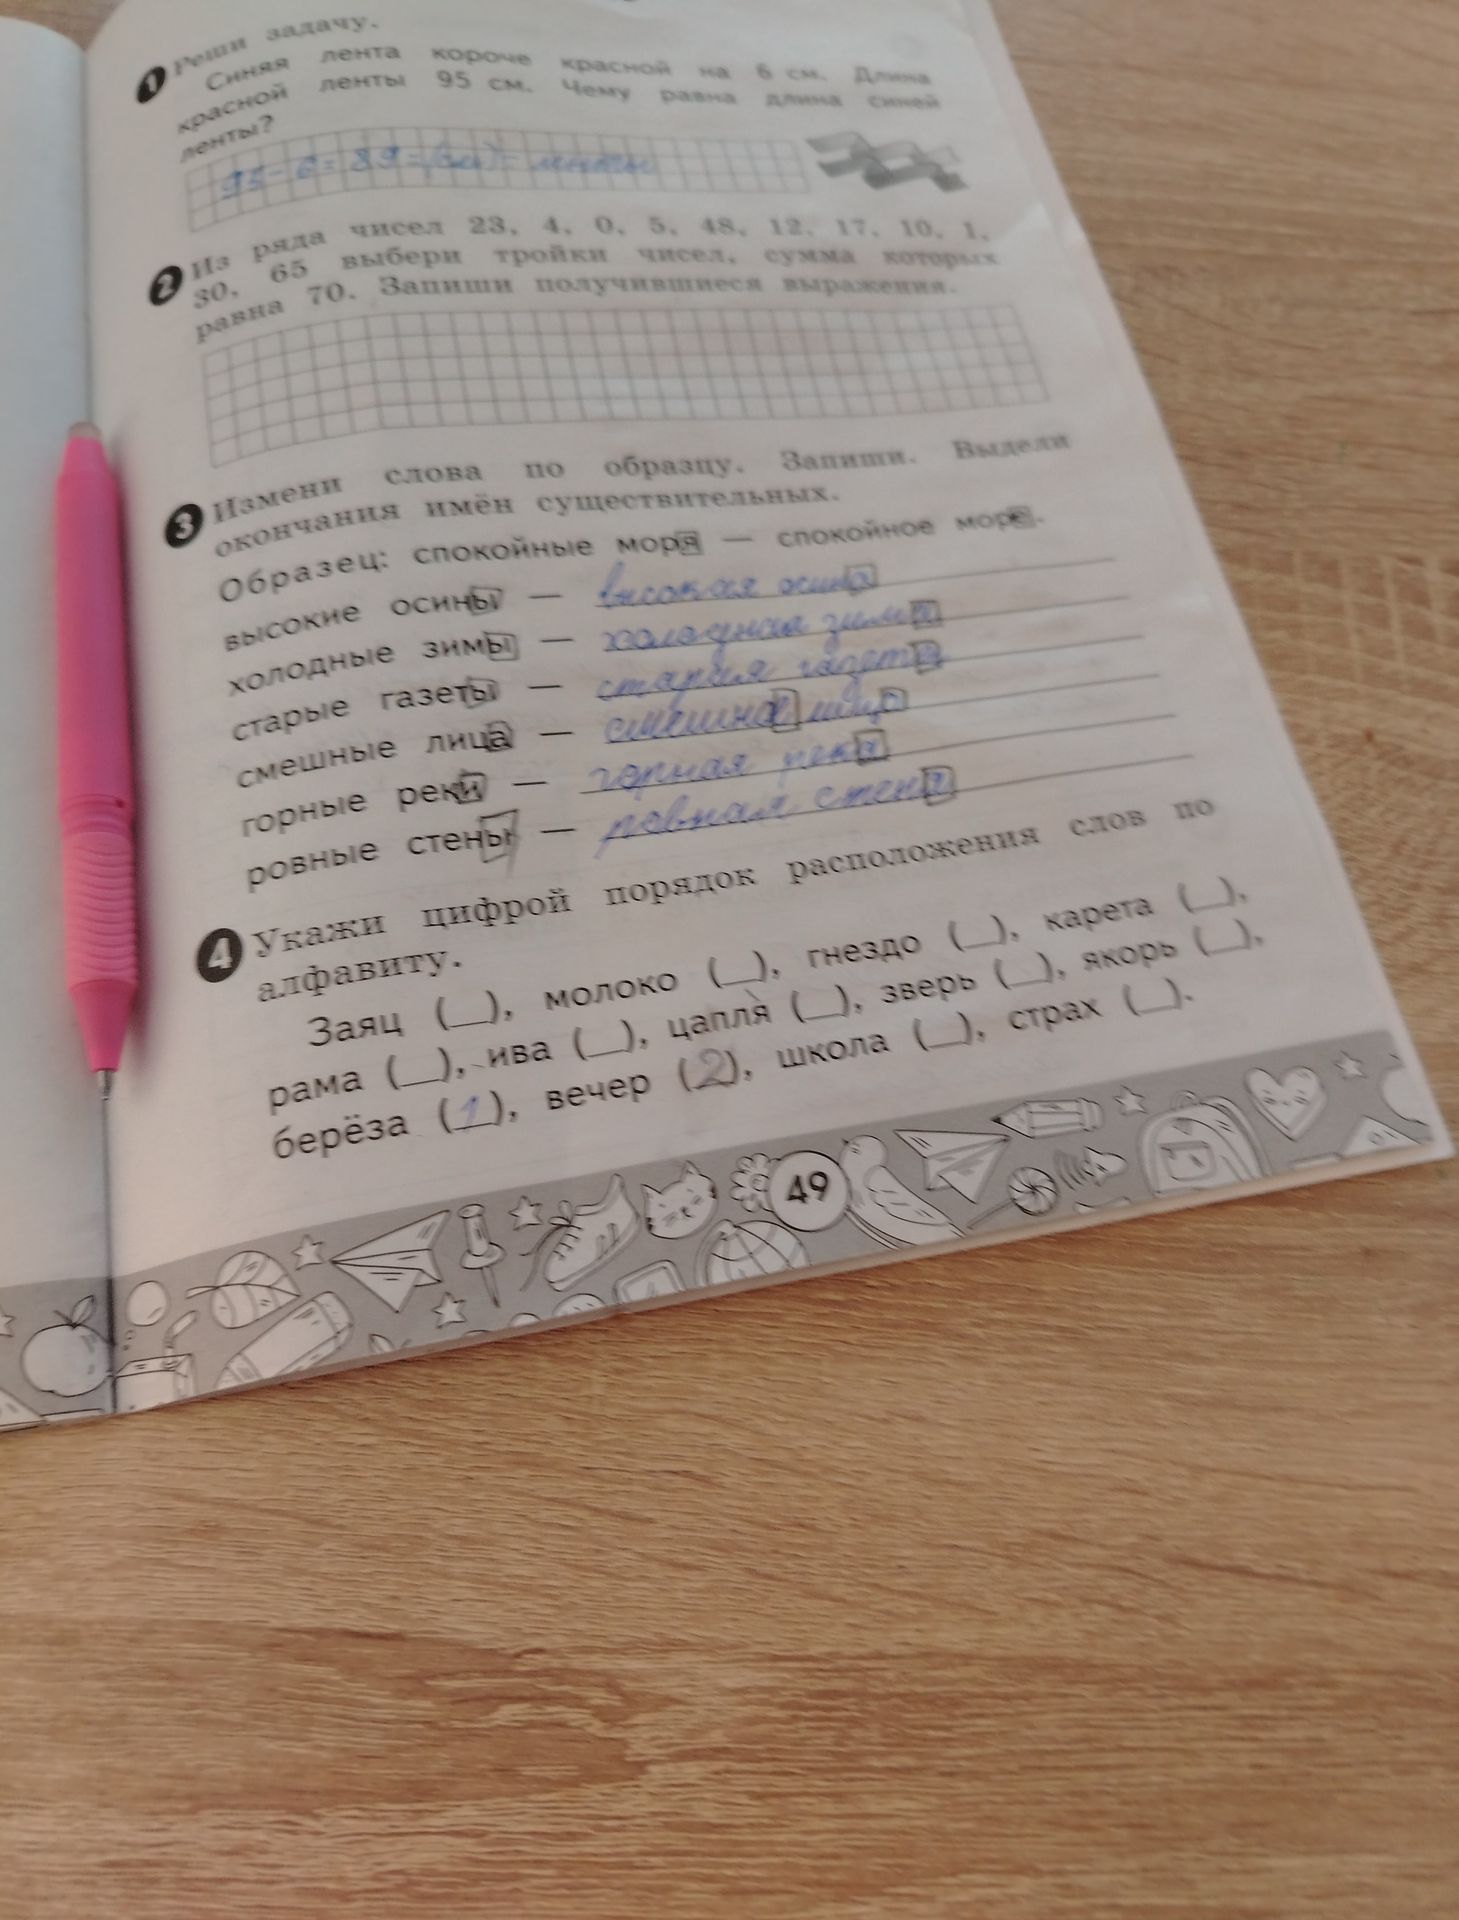 1 Реши задачу.
Синяя лента короче красной на 6 см. Длина
красной ленты 95 см. Чему равна длина синей
ленты?
95 - 6 = 89 = (см) - ленты
2 Из ряда чисел 23, 4, 0, 5, 48, 12, 17, 10, 1,
30, 65 выбери тройки чисел, сумма которых
равна 70. Запиши получившиеся выражения.
3 Измени слова по образцу. Запиши. Выдели
окончания имён существительных.
Образец: спокойные моря — спокойное море.
высокие осины — высокая осина
холодные зимы — холодная зима
старые газеты — старая газета
смешные лица — смешное лицо
горные реки — горная река
ровные стены — ровная стена
4 Укажи цифрой порядок расположения слов по
алфавиту.
Заяц (__), молоко (__), гнездо (__), карета (__),
рама (__), ива (__), цапля (__), зверь (__), якорь (__),
берёза (1), вечер (2), школа (__), страх (__).
49